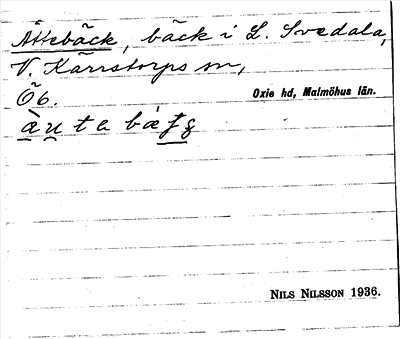 Åttebäck, bäck i L. Svedala,
V. Kärrstorps sn,
Ob.
Oxie hd, Malmöhus län.
NILS NILSSON 1936.